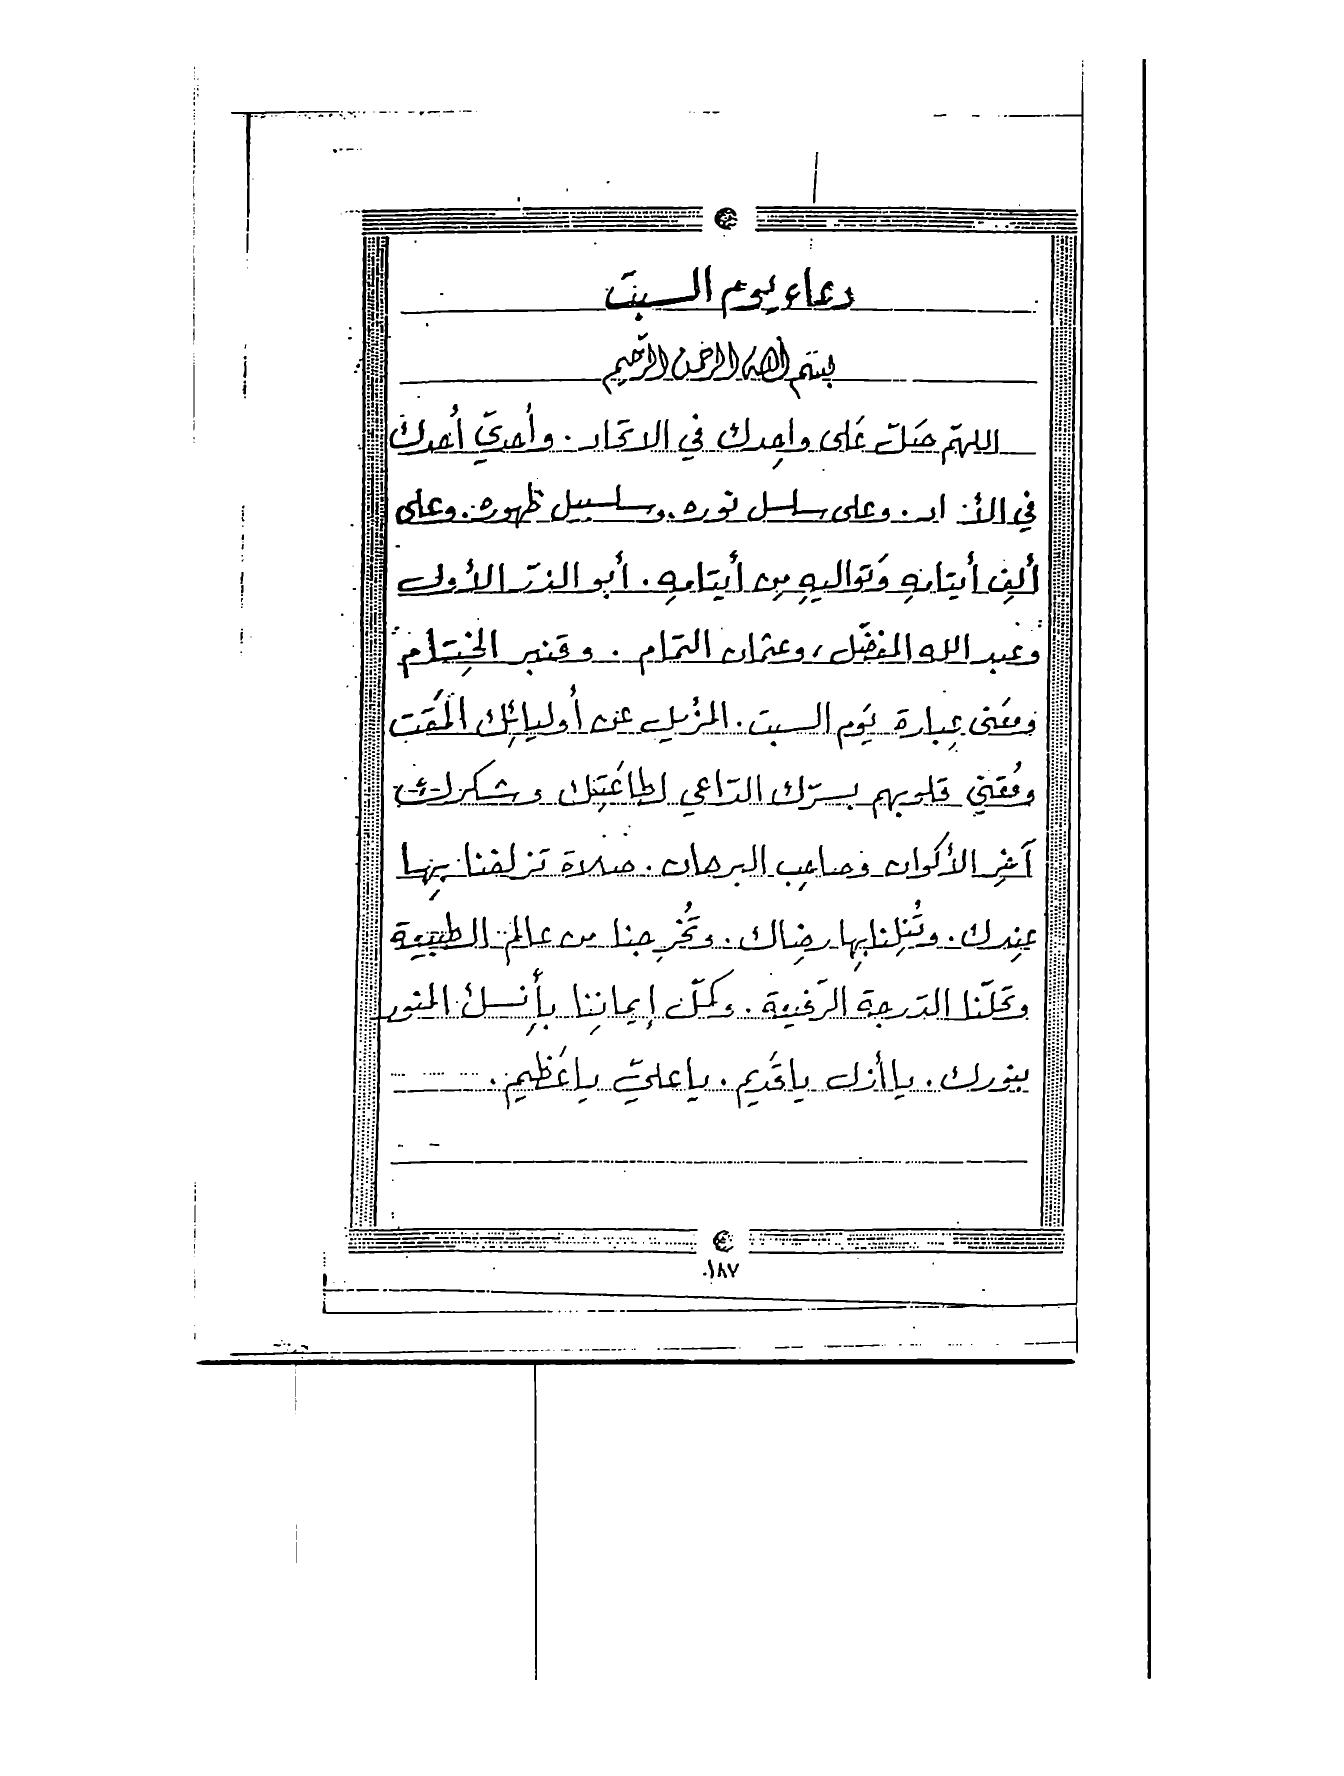 دعاء يوم السبت
بسم الله الرحمن الرحيم
اللهم صَلّ عَلى واحِدك في الاتحاد. وأحديّ أحدك
في الأ اد. وعلى سلسل نوره. وسلسبيل ظهوره. وعلى
ألِف أيتامِهِ وَتواليهِ مِن أيتامِهِ. أبو الذرّ الأول
وعبد الله المفضّل، وعثمان التمام. وقنبر الخِتام
ومعَنى عِبارة يَوم السبت. المُزيل عن أوليائِك المَقت
قلوبهم بسرّك الدّاعي لطاعَتِك وشكرك
آخِر الأكوان وصاحِب البرهان. صلاة تزلفنا بِها
عِندك. وتُنِلنا بِها رضاك. وتُخرِجنا من عالم الطبيعة
وتحَلّنا الدَرجة الرّفيعة. وكمّل إيمانِنا بأُنسك المنور
بنورك. يا أزل يا قَديم. يا عليّ يا عَظيم.
١٨٧